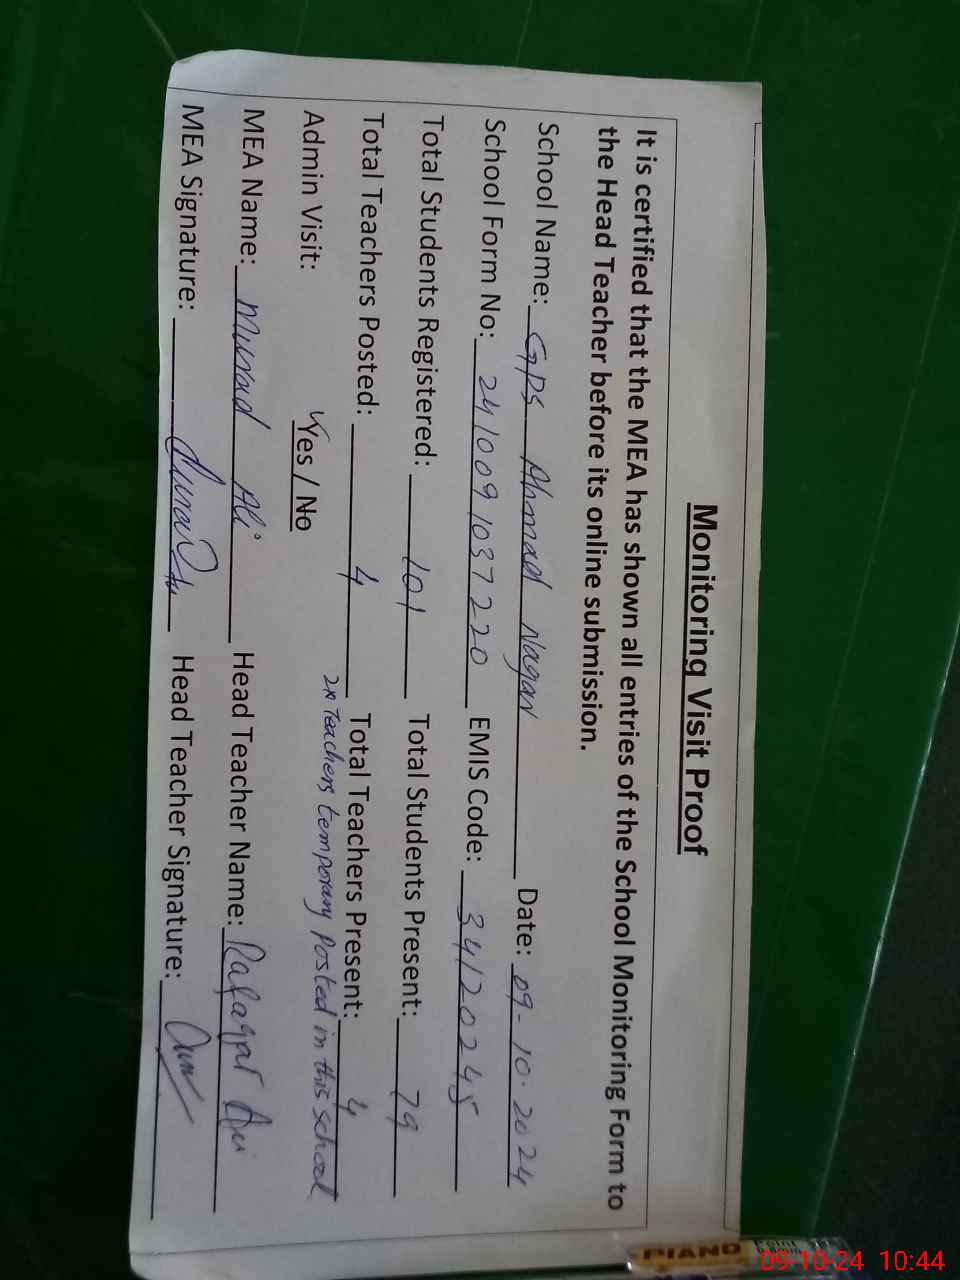 Monitoring Visit Proof
It is certified that the MEA has shown all entries of the School Monitoring Form to
the Head Teacher before its online submission.
School Name: GPS Ahmad Nagar Date: 09-10-2024
School Form No: 2410091037220 EMIS Code: 34120245
Total Students Registered: 101 Total Students Present: 79
Total Teachers Posted: 4 Total Teachers Present: 4
2x Teachers temporary posted in this school
Admin Visit: Yes / No
MEA Name: Murad Ali Head Teacher Name: Ali
MEA Signature: Head Teacher Signature:
PIANO
Point
09-10-24 10:44